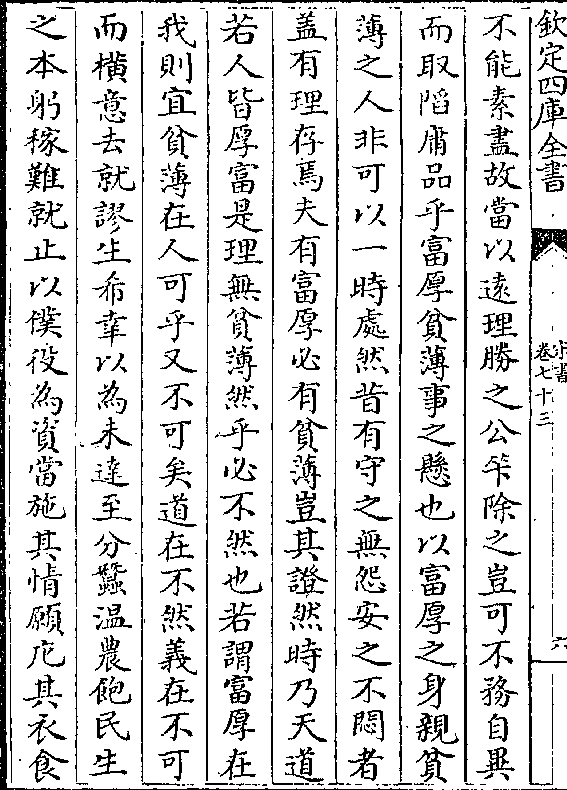 欽定四庫全書
宋書
卷七十三
六
不能素盡故當以遠理勝之公筭除之豈可不務自異
而取䧟庸品乎富厚貧薄事之懸也以富厚之身親貧
薄之人非可以一時處然昔有守之無怨安之不悶者
盖有理存焉夫有富厚必有貧薄豈其證然時乃天道
若人皆厚富是理無貧薄然乎必不然也若謂富厚在
我則宜貧薄在人可乎又不可矣道在不然義在不可
而横意去就謬生希幸以為未達至分蠶温農飽民生
之本躬稼難就止以僕役為資當施其情願庀其衣食